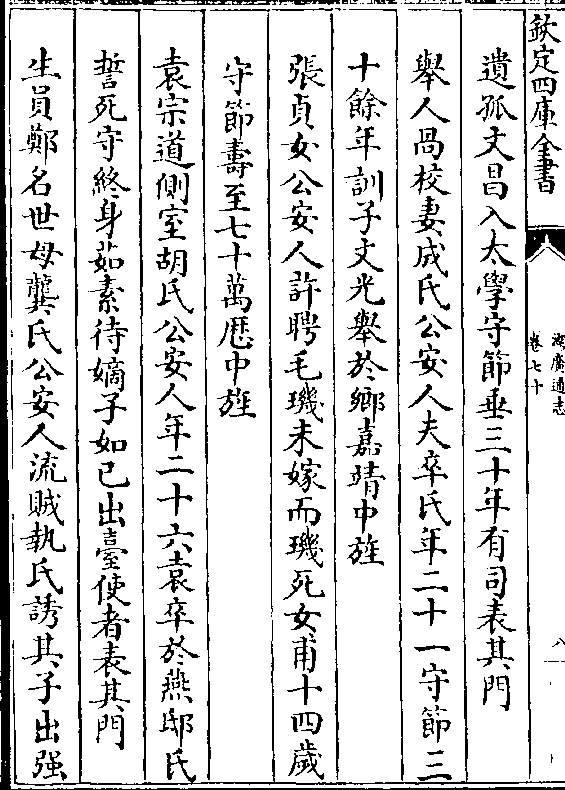 欽定四庫全書
湖廣通志
卷七十
八
遺孤文昌入太學守節垂三十年有司表其門
舉人咼校妻成氏公安人夫卒氏年二十一守節三
十餘年訓子文光舉於鄉嘉靖中旌
張貞女公安人許聘毛璣未嫁而璣死女甫十四歲
守節壽至七十萬厯中旌
袁宗道側室胡氏公安人年二十六袁卒於燕邸氏
誓死守終身茹素待嫡子如己出臺使者表其門
生員鄭名世母龔氏公安人流賊執氏誘其子出强